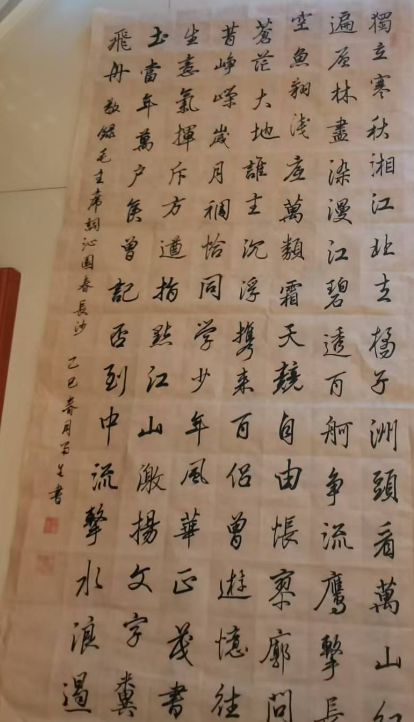 獨立寒秋湘江北去橘子洲頭看萬山紅
遍层林盡染漫江碧透百舸争流鷹擊長
空魚翔浅底萬類霜天競自由悵寥廓問
蒼茫大地誰主沉浮携来百侣曾遊憶往
昔峥嶸歲月稠恰同学少年風華正茂書
生意氣揮斥方遒指點江山激揚文字糞
土當年萬户侯曾記否到中流擊水浪遏
飛舟 敬錄毛主席詞沁園春長沙 乙巳春月書